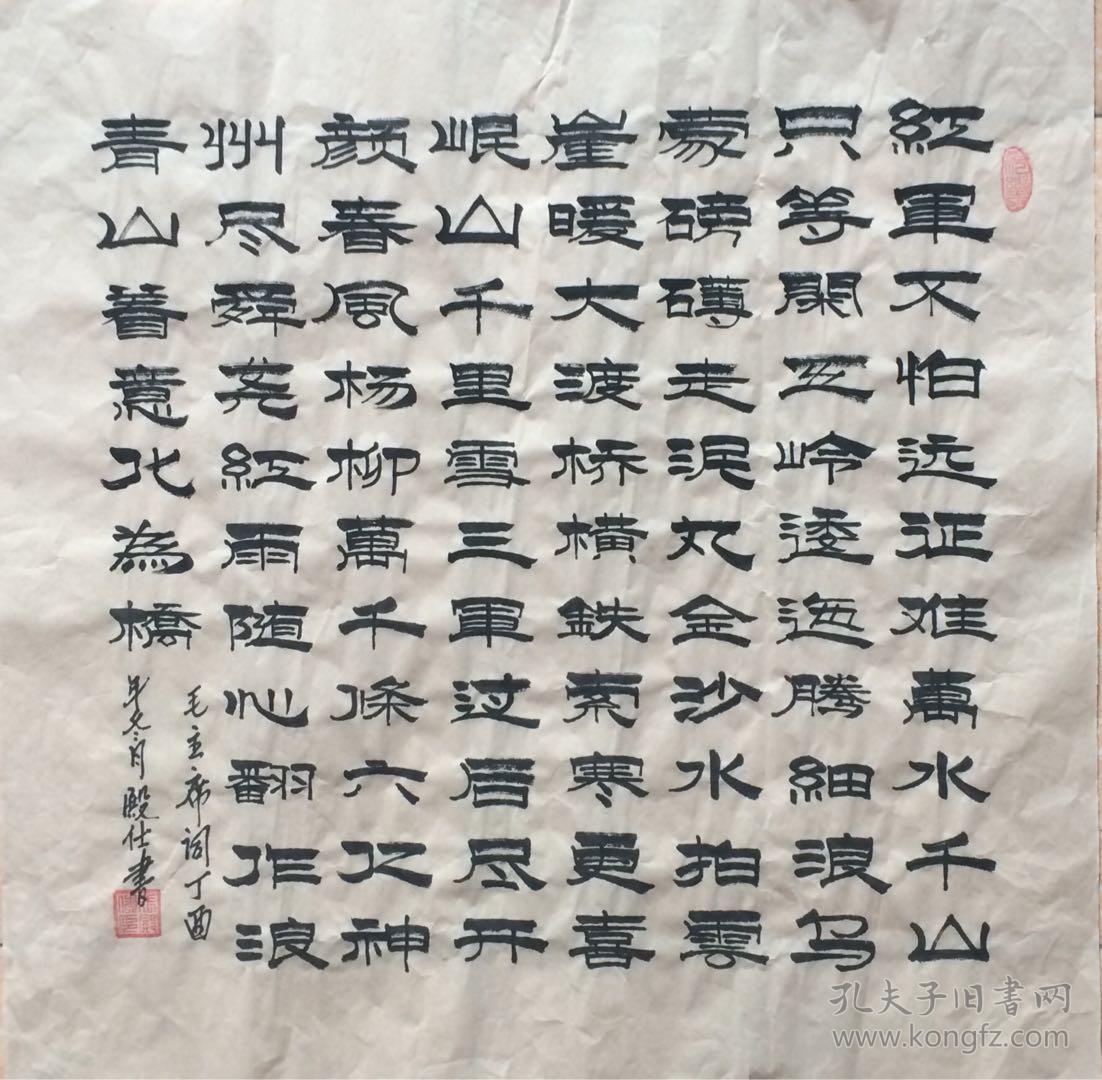 紅軍不怕远征难萬水千山
只等閑五岭逶迤腾細浪乌
蒙磅礴走泥丸金沙水拍雲
崖暖大渡桥橫鉄索寒更喜
岷山千里雪三軍过后尽开
颜春風杨柳萬千條六亿神
州尽舜尧紅雨随心翻作浪
青山着意化為橋
毛主席词丁酉
年冬月殿仕書
孔夫子旧书网
www.kongfz.com